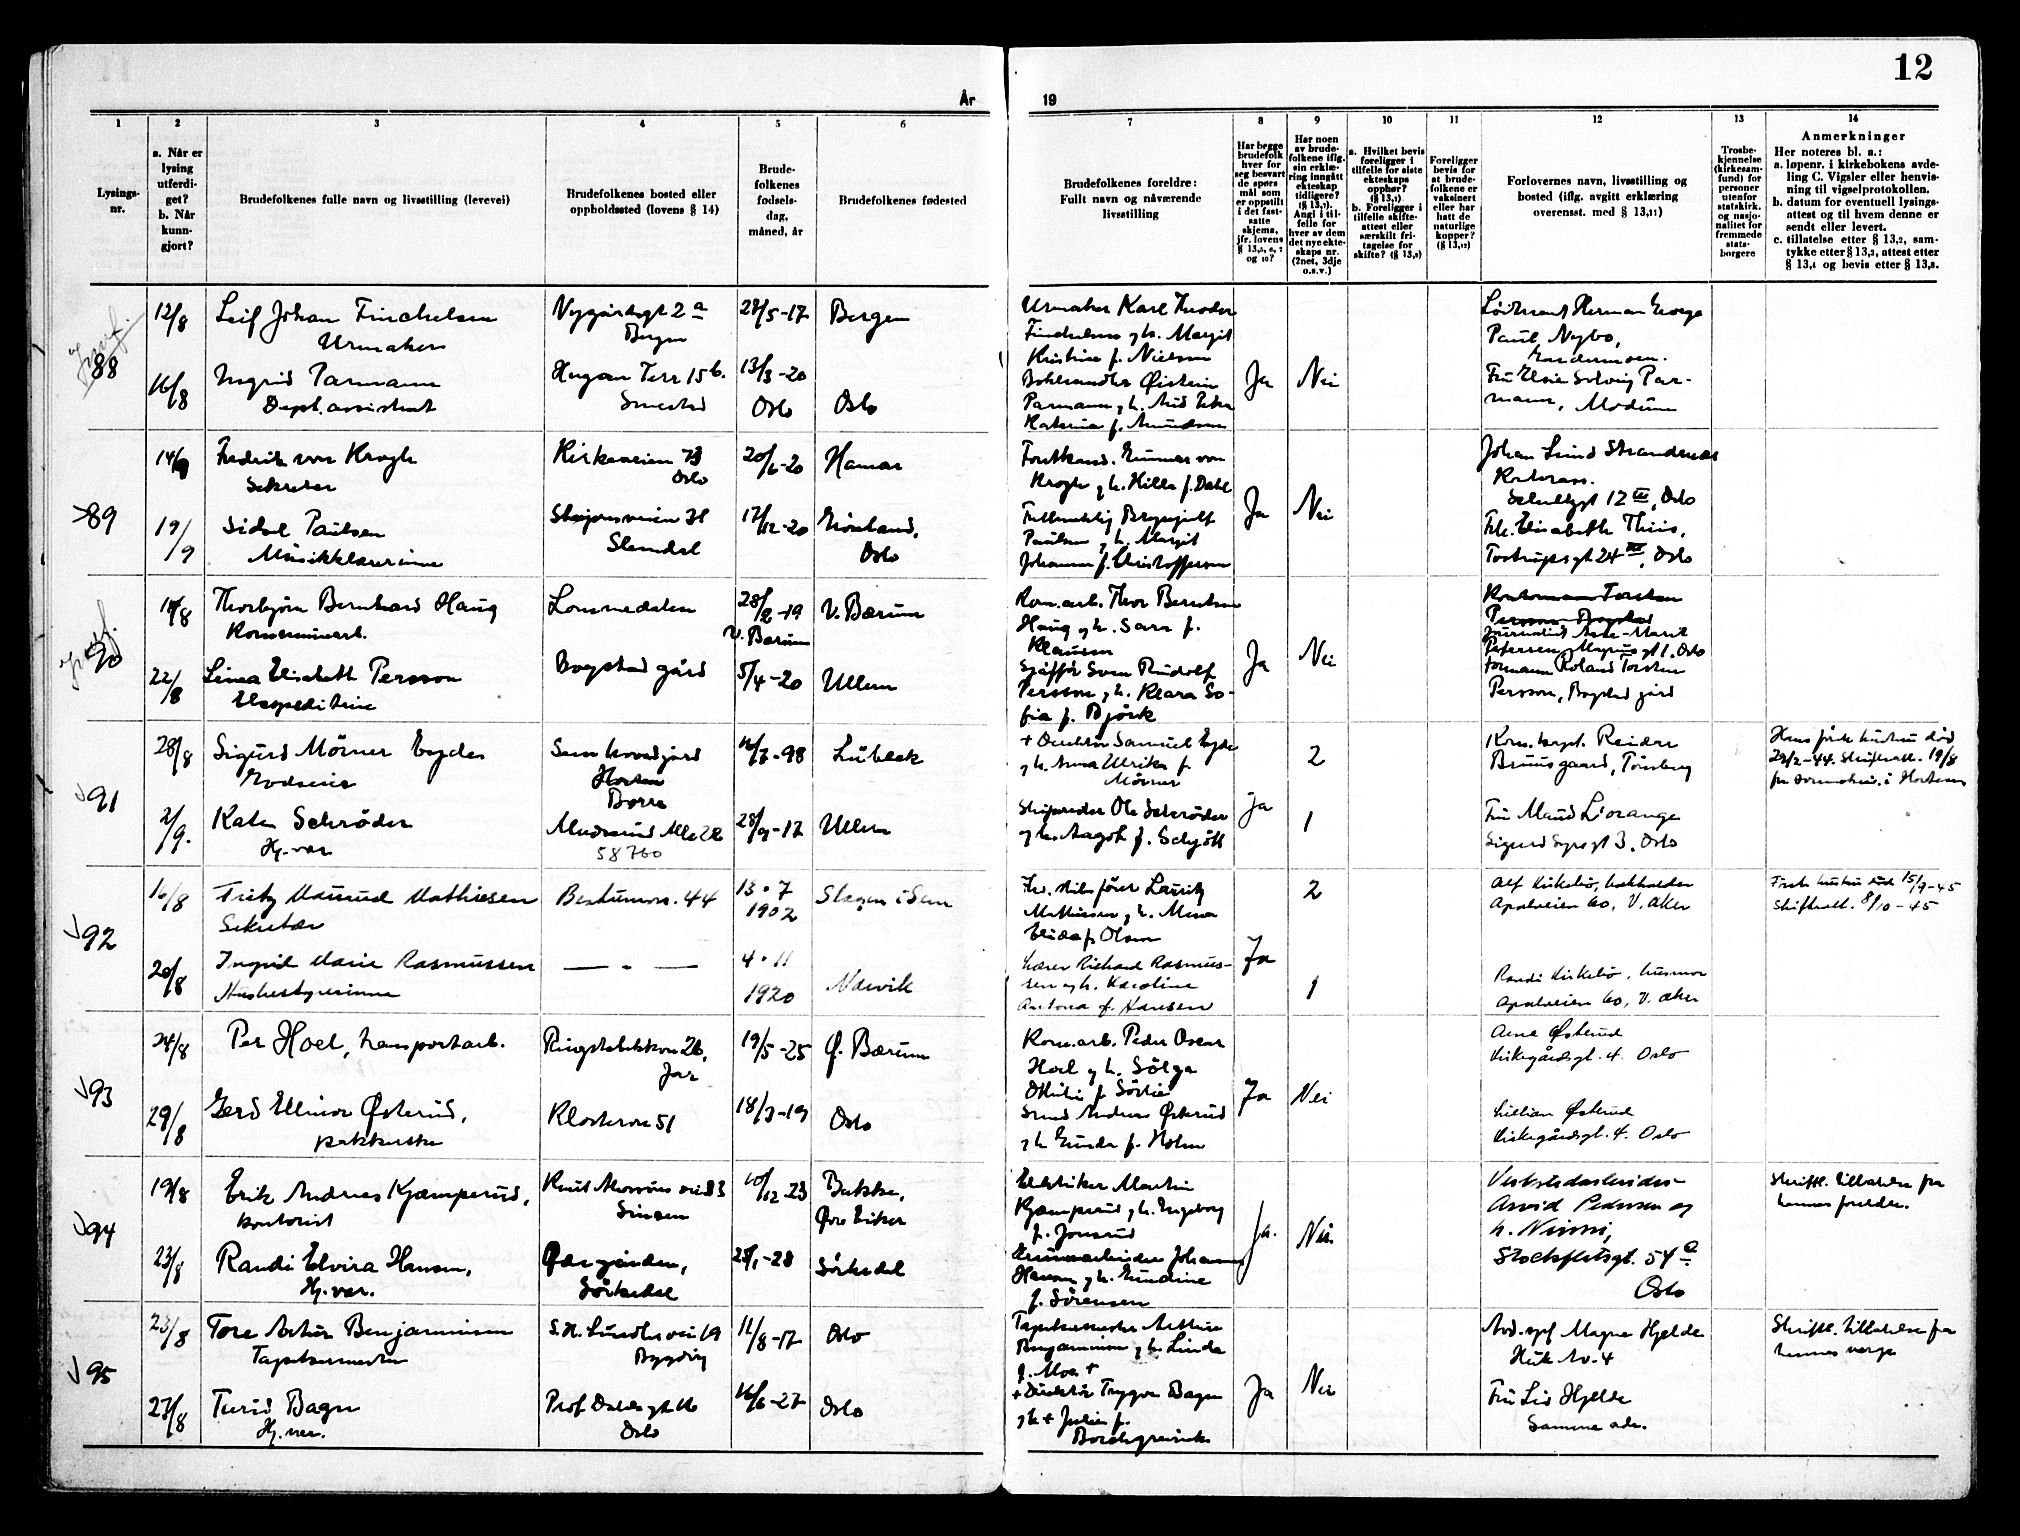 12
År
19
1
2
3
4
5
6
7
8
9
10
11
12
13
14
Lysings-
nr.
a. Når er
lysing
utferdi-
get?
b. Når
kunn-
gjort?
Brudefolkenes fulle navn og livsstilling (levevei)
Brudefolkenes bosted eller
oppholdssted (lovens § 14)
Brude-
folkenes
fødsels-
dag,
måned, år
Brudefolkenes fødested
Brudefolkenes foreldre:
Fullt navn og nåværende
livsstilling
Har begge
brudefolk
hver for
seg besvart
de spørs-
mål som
er oppstilt
i det fast-
satte
skjema,
jfr. lovens
§ 13,5, 6, 7
og 10?
Har noen
av brude-
folkene iflg.
sin erklæ-
ring inngått
ekteskap
tidligere?
(§ 13,7).
Angi i til-
felle for
hver av dem
det nye ekte-
skaps nr.
(2net, 3dje
o.s.v.)
a. Hvilket bevis
foreligger i
tilfelle for siste
ekteskaps
opphør?
(§ 13,7)
b. Foreligger i
tilfelle skifte-
attest eller
særskilt fri-
tagelse for
skifte? (§ 13,8)
Foreligger
bevis for
at brude-
folkene er
vaksinert
eller har
hatt de
naturlige
kopper?
(§ 13,12)
Forlovernes navn, livsstilling og
bosted (iflg. avgitt erklæring
overensst. med § 13,11)
Trosbe-
kjennelse
(kirkesam-
fund) for
personer
utenfor
statskirk.
og nasjo-
nalitet for
fremmede
stats-
borgere
Anmerkninger
Her noteres bl. a.:
a. løpenr. i kirkebokens avde-
ling C. Vigsler eller henvis-
ning til vigselprotokollen.
b. datum for eventuell lysings-
attest og til hvem denne er
sendt eller levert.
c. tillatelse etter § 13,2, sam-
tykke etter § 13,3, attest etter
§ 13,4 og bevis etter § 13,8.
88
12/8
Leif Johan Finckelsen
Urmaker
Nygårdsgt 2 a
Bergen
29/5-17
Bergen
Urmaker Karl Theodor
Margit
Kristine f. Nielsen
Løitnant Herman George
Paul Nybo,
16/8
Ingrid Parmann
Dept. assistent
Hegan Terr 15 b.
Smestad
13/3-20
Oslo
Oslo
Øistein
Parmann g h. Aud
Katrine f. Amundsen
Ja
Nei
Fru Elsie Solveig Par-
mann, Modum
89
14/9
Fredrik von Krogh
Sekretær
Kirkeveien 73
Oslo
20/6-20
Hamar
Forstkand. Gunnar von
Krogh g h. Hilla f. Dahl
Johan Lund Strandenæs
Schultzgt 12 III, Oslo
19/9
Sidsel Paulsen
Musikklærerinne
Skøyenveien 31
Slemdal
17/12-20
Grønland,
Oslo
Fullmektig Brynjulf
Paulsen g h. Margit
Johanne f. Christoffersen
Ja
Nei
Frk. Elisabeth Thiis,
Tostrupsgt 24 III, Oslo
90
18/8
Thorbjørn Bernhard Haug
Kommunearb.
Lommedalen
28/2-19
V. Bærum
V. Bærum
Kom.arb. Thor Berntsen
Haug g h. Sara f.
Klausen
Kontormann Torsten
Persson Bogstad
Journalist Anne-Marit
Petersen, Magnusgt 1, Oslo
22/8
Linnea Elisabeth Persson
Ekspeditrise
Bogstad gård
5/4-20
Ullern
Sjåfför Sven Rudolf
Persson g h. Klara So-
fia f. Björk
Ja
Nei
Formann Roland Torsten
Persson, Bogstad gård
91
28/8
Sigurd Mörner Eyde
Godseier
Sem hovedgård
Horten
Borre
14/7-98
Lübeck
+ Direktör Samuel Eyde
g h. Anna Ulrika f.
Mörner
2
Kom. kapt. Reidar
Bruusgaard, Tönsberg
Hans förste hustru död
29/2-44. Skifteatt. 19/8
2/9.
Katen Schröder
Hj. vær.
Madserud Alle 22
58760
28/9-17
Ullern
Skipsreder Ole Schröder
g h. Aagot f. Schjött
Ja
1
Fru Maud L'orange
Sigurd Syrsgt 3. Oslo
92
16/8
Fritz Maurud Mathiesen
Sekretær
Bestumvn. 44
13.7
1902
Slagen i Sem
Lauritz
Mathiesen g h. Mina
Elida f. Olsen
2
Alf Kirkebö, bokholder
Apalveien 60, V. Aker
Förste hustru död 15/9-45
Skifteatt. 8/10-45
20/8
Ingrid Marie Rasmussen
Husbestyrerinne
— " —
4.11
1920
Narvik
Lærer Richard Rasmus-
sen g h. Karoline
Antona f. Hansen
Ja
1
Randi Kirkebö, husmor
Apalveien 60, V. Aker
93
24/8
Per Hoel, transportarb.
Ringstabekkvn 26,
Jar
19/5-25
Ø. Bærum
Kom.arb. Peder Oscar
Hoel g h. Sölga
Arne Østerud
Kirkegårdsgt. 4. Oslo
29/8
Gerd Ellinor Østerud,
pakkerske
Klostervn 51
18/3-19
Oslo
Smed Anders Østerud
g h Gunda f. Holm
Ja
Nei
Lillian Østerud
Kirkegårdsgt. 4. Oslo
94
19/8
Erik Andreas Kjæmperud,
kontorist
Sinsen
10/12-23
Bakke,
Øvre Eiker
Elektriker Martin
Kjæmperud g h. Ingeborg
f. Jonsrud
Verkstedarbeider
Arvid Pedersen og
h. Nimmi,
Stockfletsgt. 54 a
Oslo
Skriftl. tillatelse fra
hennes foreldre.
23/8
Randi Elvira Hansen,
Hj. vær.
Sörkedal
28/1-28
Sörkedal
Grunnarbeider Johannes
Hansen g h. Gundine
f. Sörensen
Ja.
Nei
95
23/8
Tore Artur Benjaminsen
Tapetsermester
Bygdöy
11/8-17
Oslo
Tapetsermester Arthur
Benjaminsen g h. Linda
f. Moe +
Magne Hjelde
Huk Av. 4
Skriftl. tillatelse fra
hennes verge
27/8
Turid Bagn
Hj. vær.
Prof Dahlsgt 16
Oslo
16/6-27
Oslo
+ Direktör Trygve Bagn
g h + Julie f.
Borchgrevink
Ja
Nei
Fru Liv Hjelde
Samme adr.